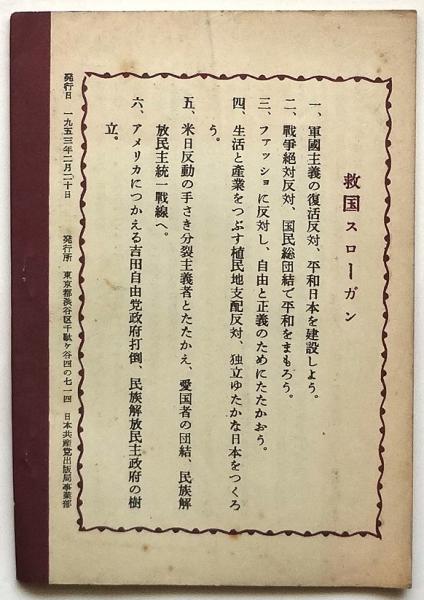 救国スローガン
一、軍國主義の復活反対、平和日本を建設しよう。
二、戦爭絶対反対、国民総団結で平和をまもろう。
三、ファッショに反対し、自由と正義のためにたたかおう。
四、生活と産業をつぶす植民地支配反対、独立ゆたかな日本をつくろ
う。
五、米日反動の手さき分裂主義者とたたかえ、愛国者の団結、民族解
放民主統一戦線へ。
六、アメリカにつかえる吉田自由党政府打倒、民族解放民主政府の樹
立。
発行日 一九五三年二月二十日 発行所 東京都渋谷区千駄ケ谷四の七一四 日本共産党出版局事業部